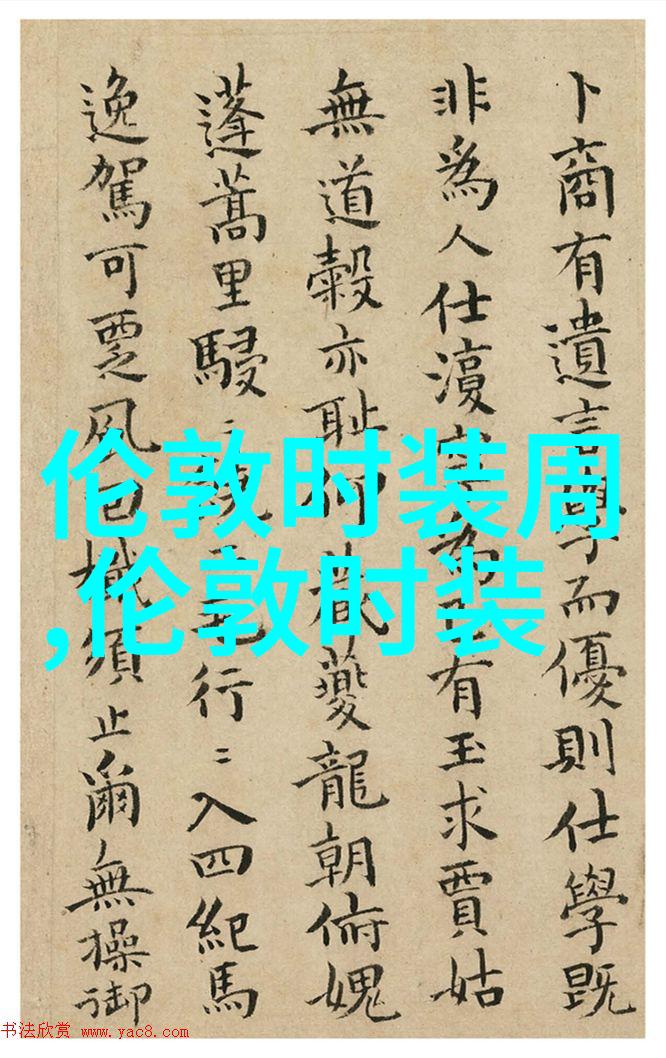 卜商有遺言學而優則仕學既
非為人仕為有玉求賈姑
無道穀亦恥何夔龍朝俯媿
蓬蒿里駸行入四紀馬
逸駕可覂風須止爾無操御
伦敦时装周
,伦敦时装
书法欣赏 www.yac8.com